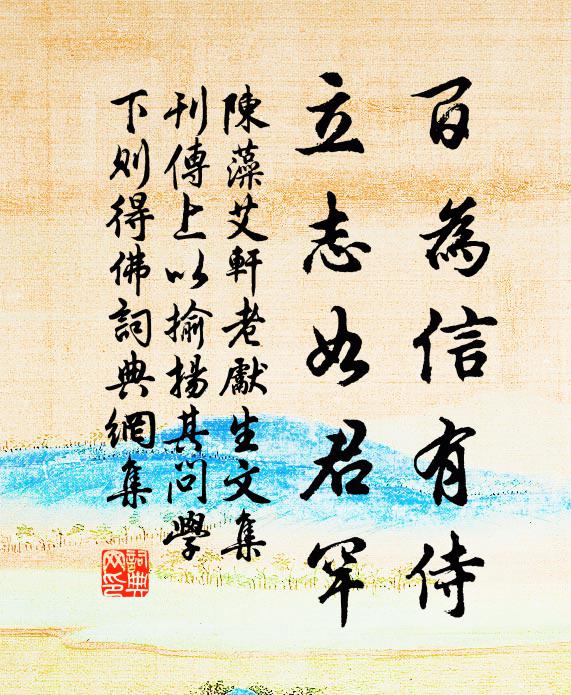 百為信有侍
立志如君罕
陳藻艾軒老獻生文集
刊傳上以揄揚其問學
下則得佛詞典網集
詞典